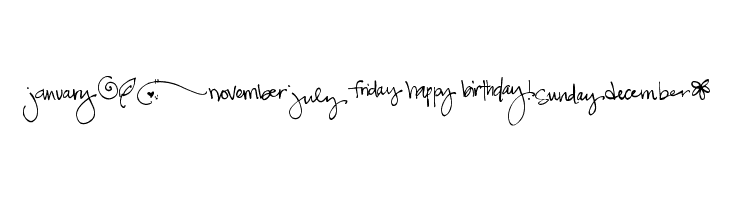 january november july friday happy birthday! sunday december